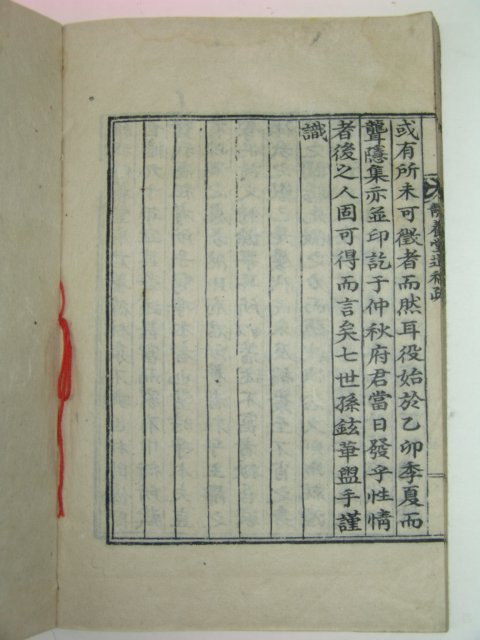 靜養堂遺稿跋
或有所未可徵者而然耳役始於乙卯季夏而
聾隱集亦並印訖于仲秋府君當日發乎性情
者後之人固可得而言矣七世孫鉉華盥手謹
識